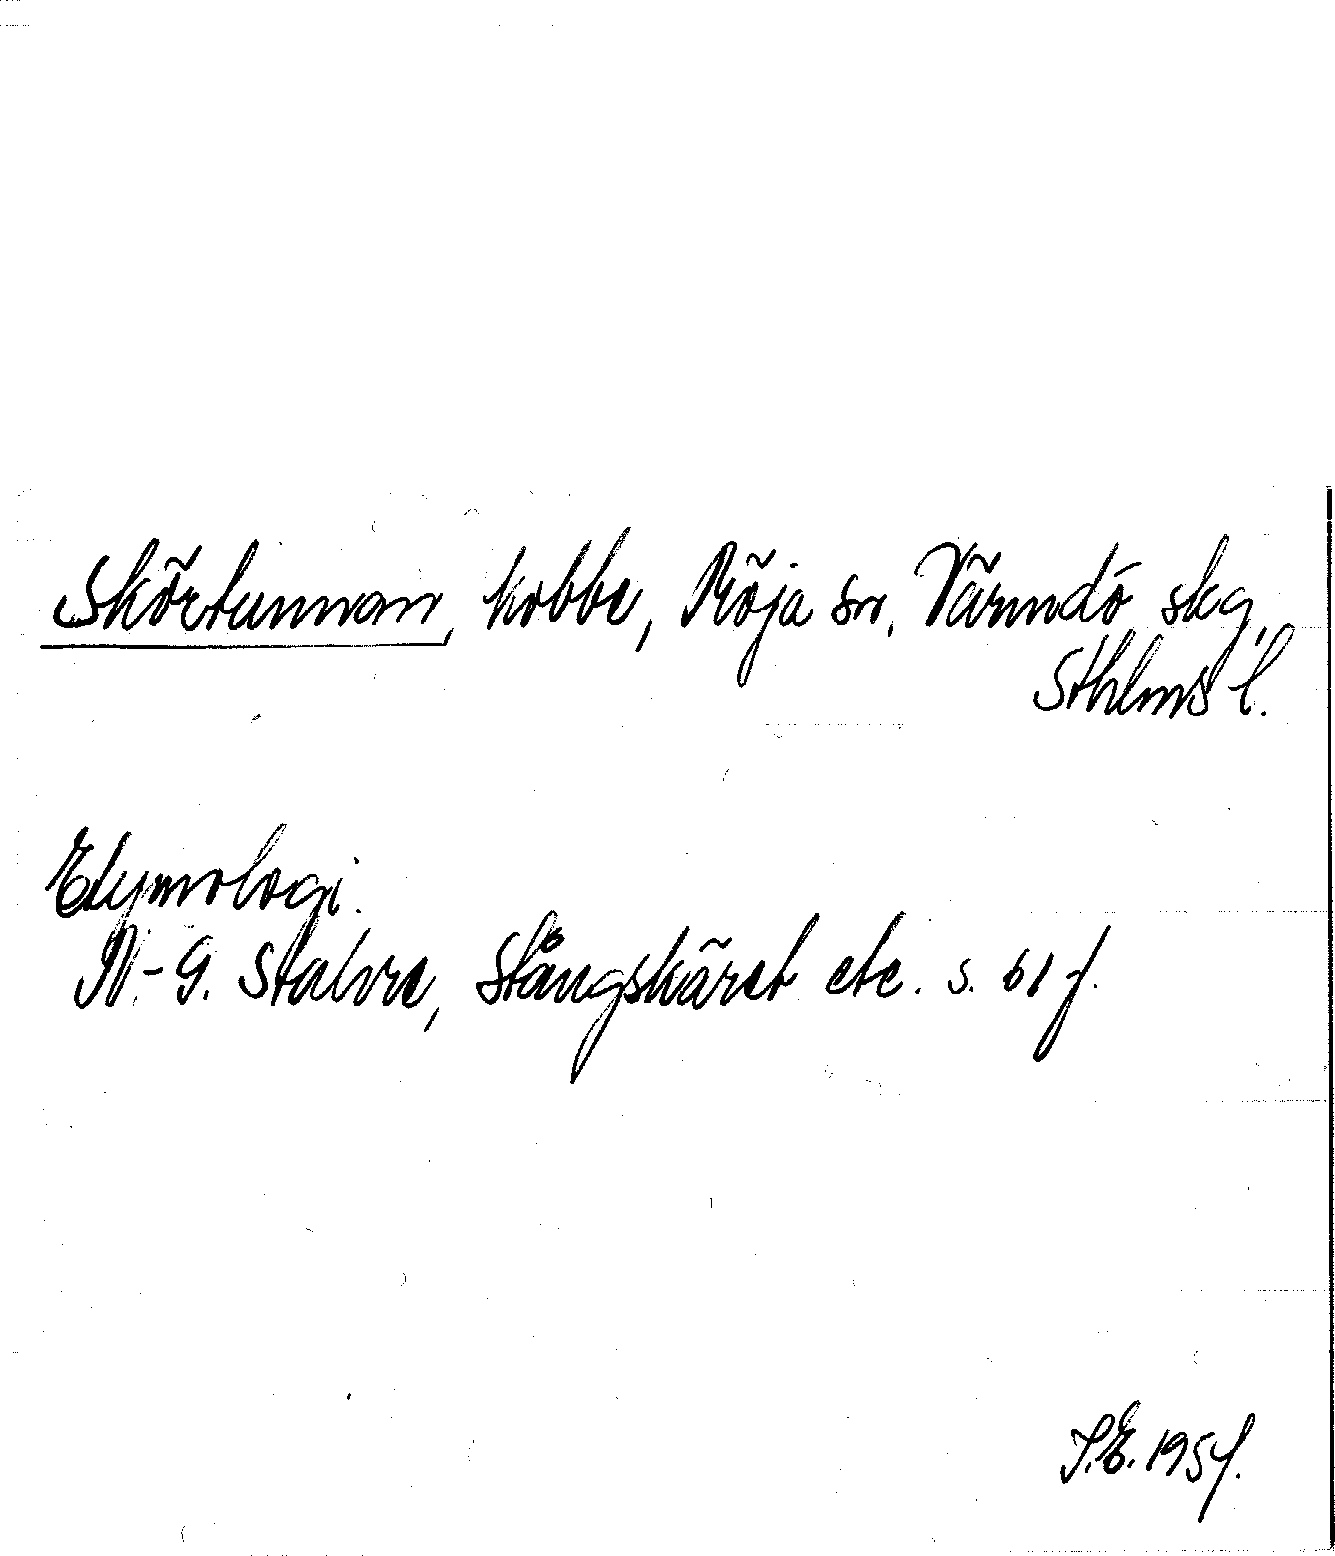 Skörtunnan, kobbe, Möja sn, Värmdö skg,
Sthlms l.
Etymologi.
N.-G. Stahre, Stångskäret etc. s. 61 f.
S.E. 1957.